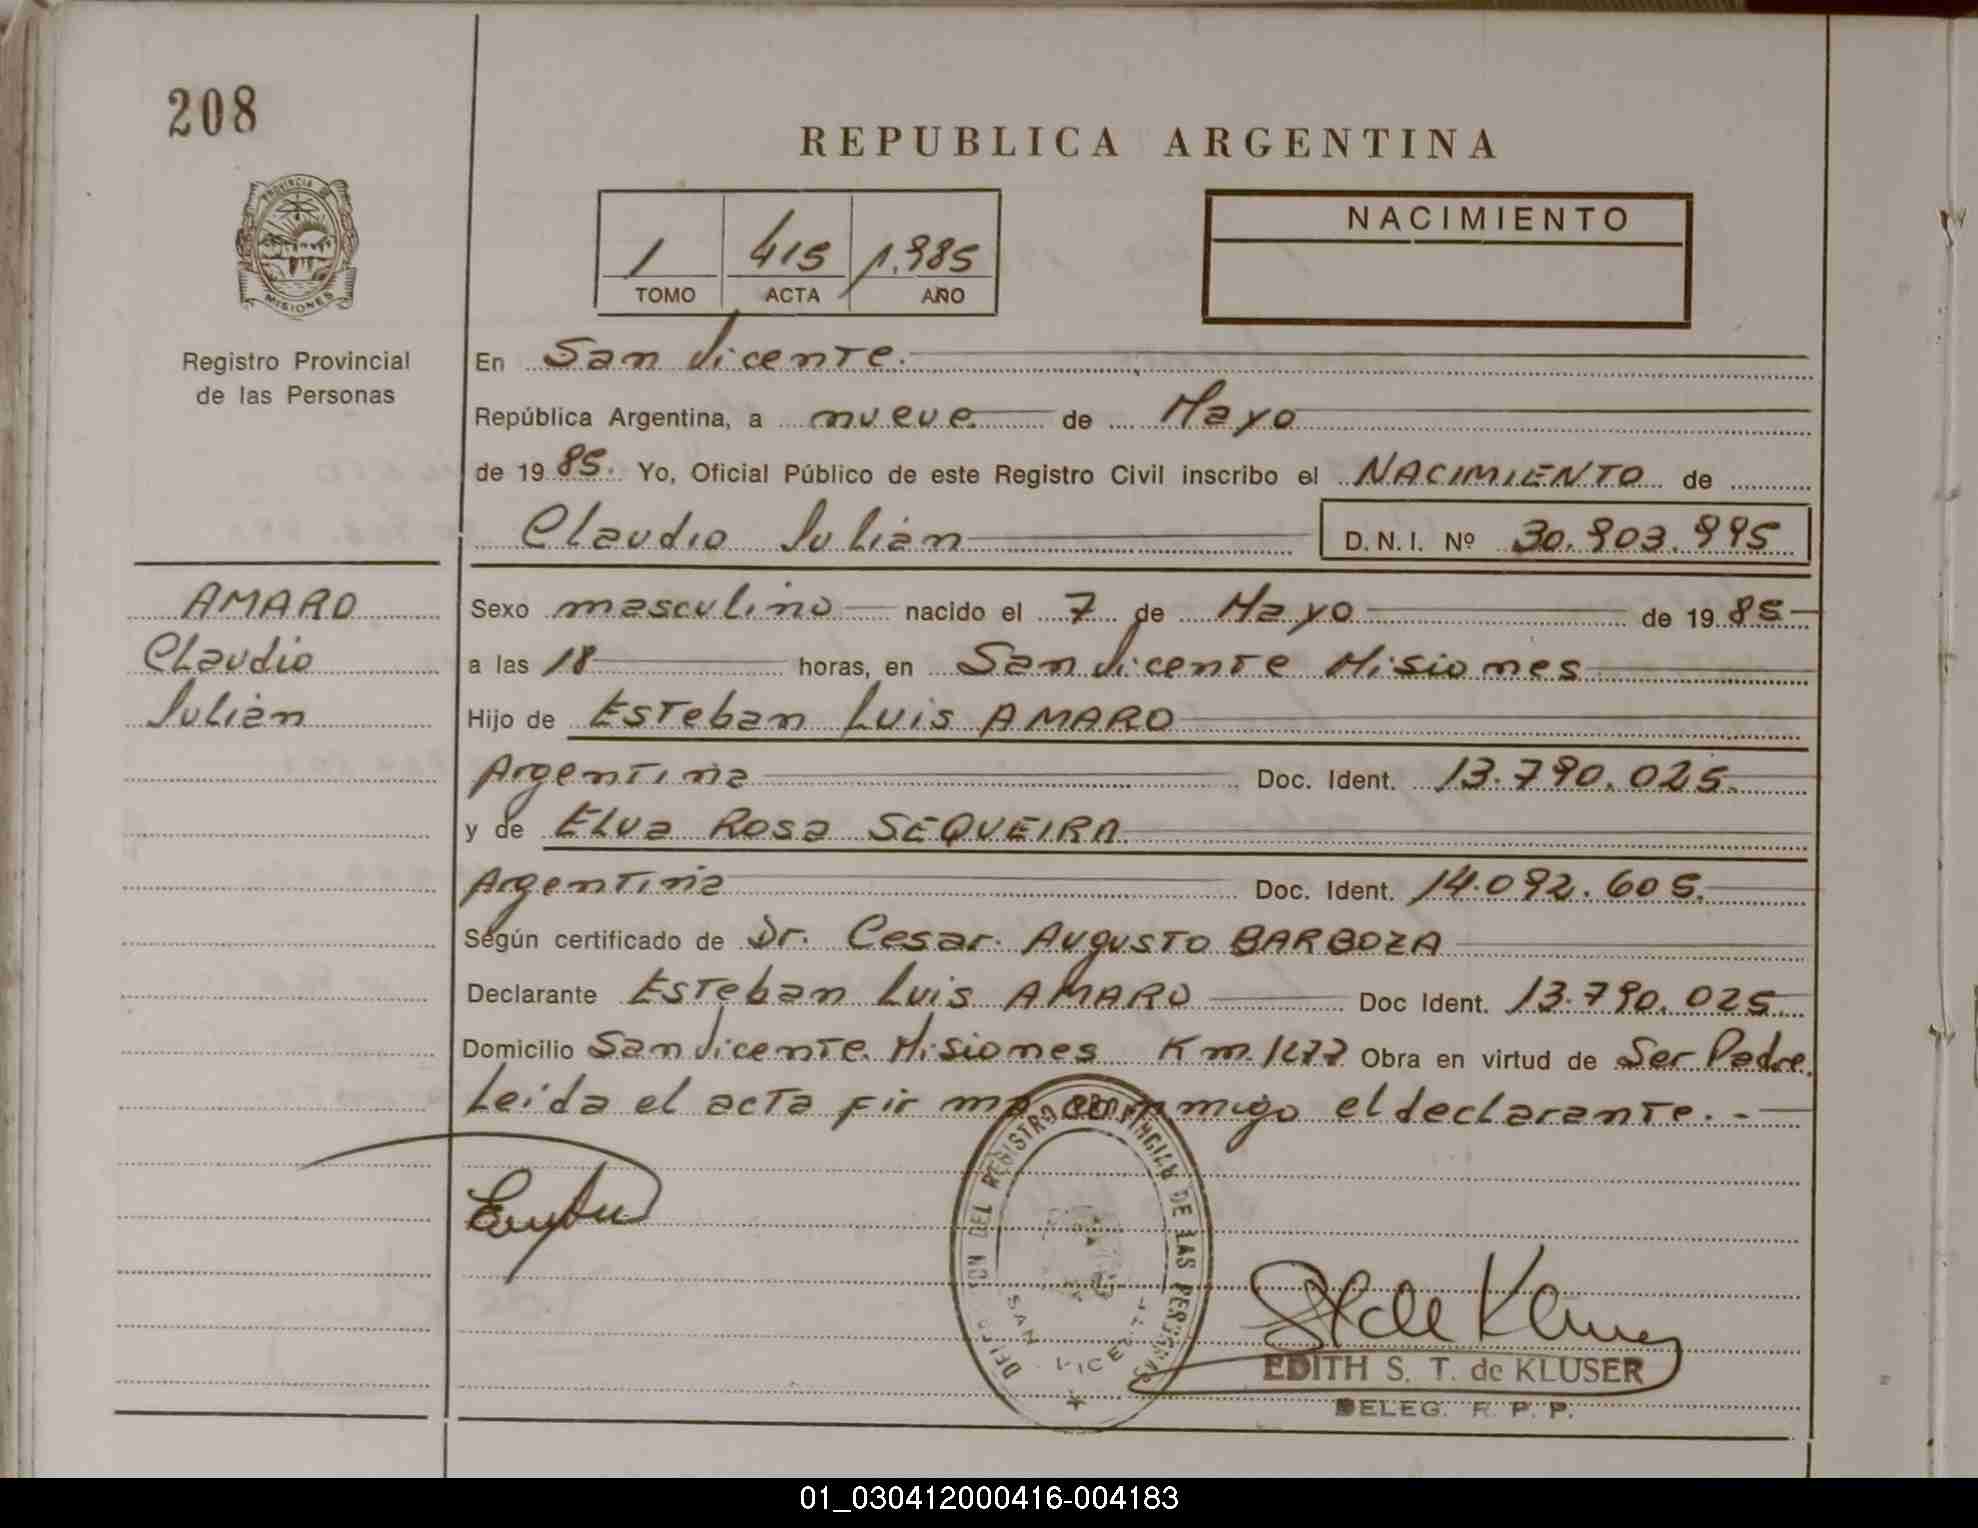 208
REPUBLICA ARGENTINA
PROVINCIA DE
MISIONES
Registro Provincial
de las Personas
1 415 1.985
TOMO ACTA AÑO
NACIMIENTO
En San Vicente.
República Argentina, a nueve de Mayo
de 1985. Yo, Oficial Público de este Registro Civil inscribo el NACIMIENTO de
Claudio Julián D.N.I. Nº 30.903.995
AMARO
Claudio
Julián
Sexo masculino nacido el 7 de Mayo de 1985
a las 18 horas, en San Vicente Misiones
Hijo de Esteban Luis AMARO
Argentina Doc. Ident. 13.790.025.
y de Elva Rosa SEQUEIRA.
Argentina Doc. Ident. 14.092.605.
Según certificado de Dr. Cesar Augusto BARBOZA
Declarante Esteban Luis AMARO Doc Ident. 13.790.025.
Domicilio San Vicente. Misiones Km. 1277 Obra en virtud de Ser Padre.
Leída el acta firma conmigo el declarante.-
DEL REGISTRO PROVINCIAL DE LAS PERSONAS
SAN VICENTE
EDITH S. T. de KLUSER
DELEG. R. P. P.
01_030412000416-004183